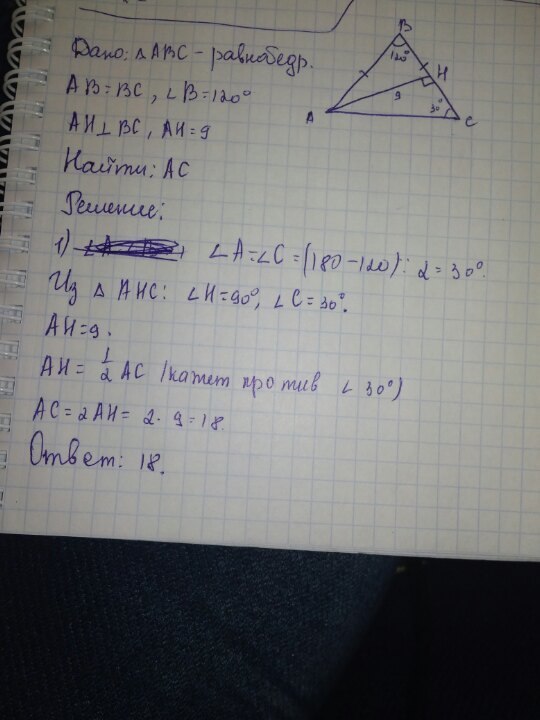 Дано: △ABC - равнобедр.
AB=BC, ∠B=120°
AH⊥BC, AH=9
Найти: AC
Решение:
1) ∠A=∠C=(180-120):2=30°.
Из △ AHC: ∠H=90°, ∠C=30°.
AH=9.
AH= 1/2 AC (катет против ∠ 30°)
AC=2AH= 2·9=18.
Ответ: 18.
B
120°
H
9
30°
A
C